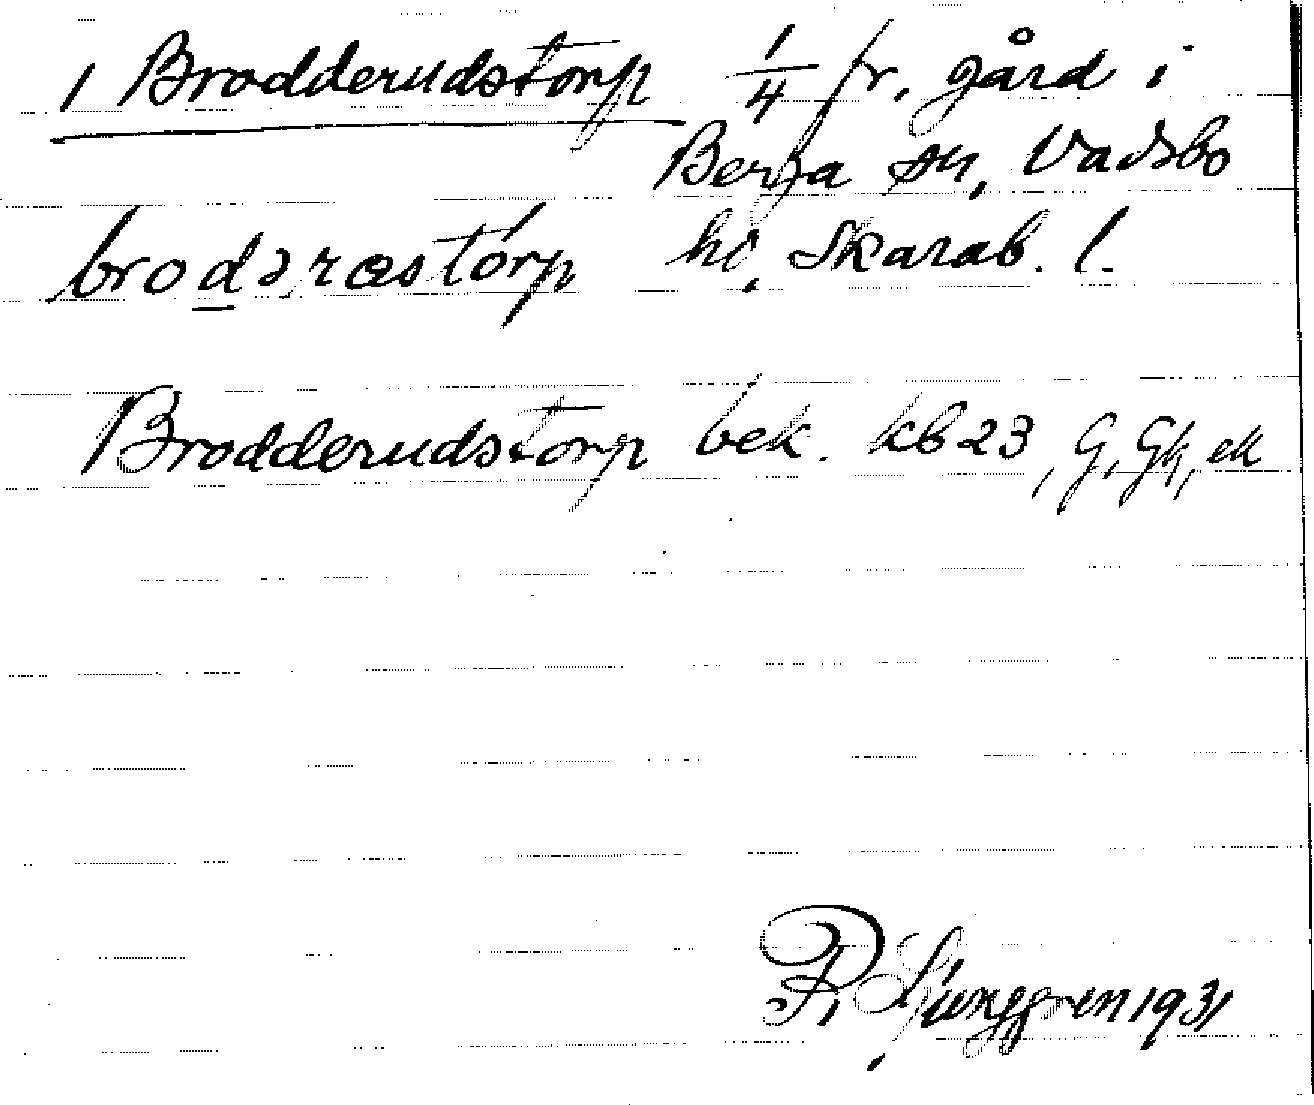 1 Brodderudstorp 1/4 fr. gård i
Berga sn, Vadsbo
brodəræstorp hd, Skarab. l.
Brodderudstorp bek. kb 23, G, Gk, ek
R. Ljunggren 1931